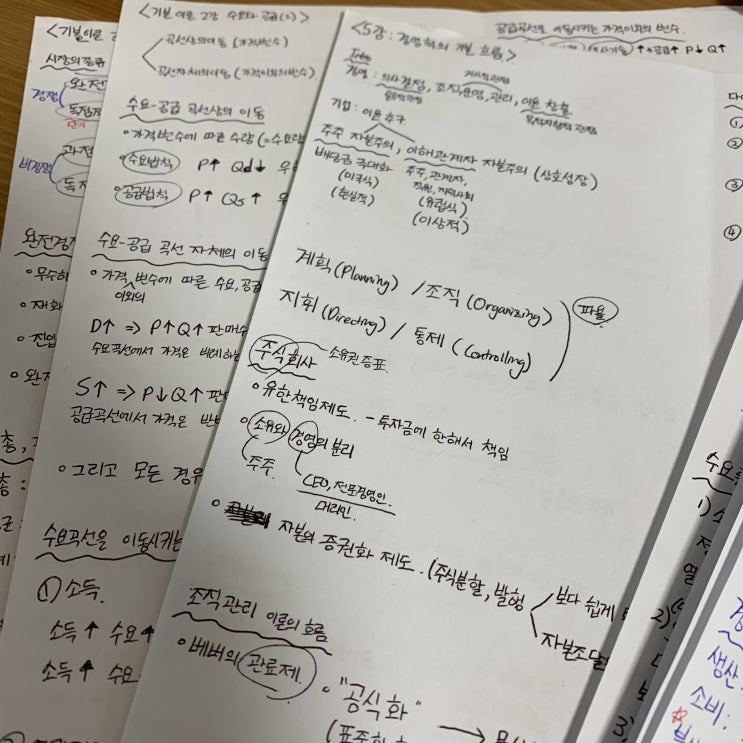 <기본이론
시장의 종류
경쟁
완전
독점
단기
비경쟁
과점
독점
완전경쟁
무수히
재화
진입
완전
<기본 이론 2강 수요와 공급(2)>
곡선상의 이동 (가격변수)
곡선자체의 이동 (가격이외의 변수)
수요-공급 곡선상의 이동
가격변수에 따른 수량 (=수요량
수요법칙 P↑ Qd↓
공급법칙 P↑ Qs↑
수요-공급 곡선 자체의 이동
가격 변수에 따른 수요, 공급
이외의
D↑ => P↑ Q↑ 판매수
수요곡선에서 가격은 비례하는
S↑ => P↓ Q↑ 판매
공급곡선에서 가격은 반비
그리고 모든 경우
수요곡선을 이동시키는
① 소득.
소득↑ 수요↑
소득↑ 수요
공급곡선을 이동시키는 가격이외의 변수.
↑→공급↑ P↓ Q↑
<5강 : 경영학의 개본 흐름>
Intro
경영 : 의사결정, 조직운영, 관리, 이윤 창출
기업 : 이윤 추구
주주 자본주의, 이해관계자 자본주의 (상호성장)
배당금 극대화
(미국식)
(현실적)
주주, 관계자,
직원, 지역사회
(유럽식)
(이상적)
계획(Planning) / 조직 (Organizing)
지휘 (Directing) / 통제 (Controlling)
파욜
주식회사 소유권 증표.
유한책임제도. - 투자금에 한해서 책임
소유와 경영의 분리
주주.
CEO, 전문경영인.
대리인.
자본의 증권화 제도. (주식분할, 발행
보다 쉽게
자본조달
조직관리 이론의 흐름
베버의 관료제.
"공식화"
①
②
③
④
수요
1)
2)
3)
생산
소비: